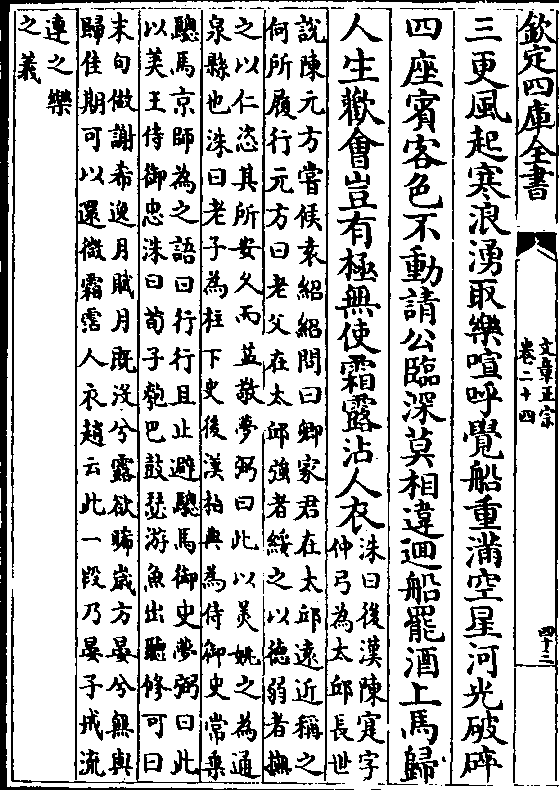 欽定四庫全書
文章正宗
卷二十四
四十二
三更風起寒浪湧取樂喧呼覺船重滿空星河光破碎
四座賓客色不動請公臨深莫相違迴船罷酒上馬歸
人生歡會豈有極無使霜露沾人衣
洙曰後漢陳寔字
仲弓為太邱長世
說陳元方嘗候袁紹紹問曰卿家君在太邱遠近稱之
何所履行元方曰老父在太邱強者綏之以德弱者撫
之以仁恣其所安久而益敬夢弼曰此以美姚之為通
泉縣也洙曰老子為柱下史後漢桓典為侍御史常乗
驄馬京師為之語曰行行且止避驄馬御史夢弼曰此
以美王侍御忠洙曰荀子匏巴鼓瑟游魚出聽修可曰
末句倣謝希逸月賦月既没兮露欲晞歲方晏兮無與
歸佳期可以還微霜霑人衣趙云此一段乃晏子戒流
連之樂
之義